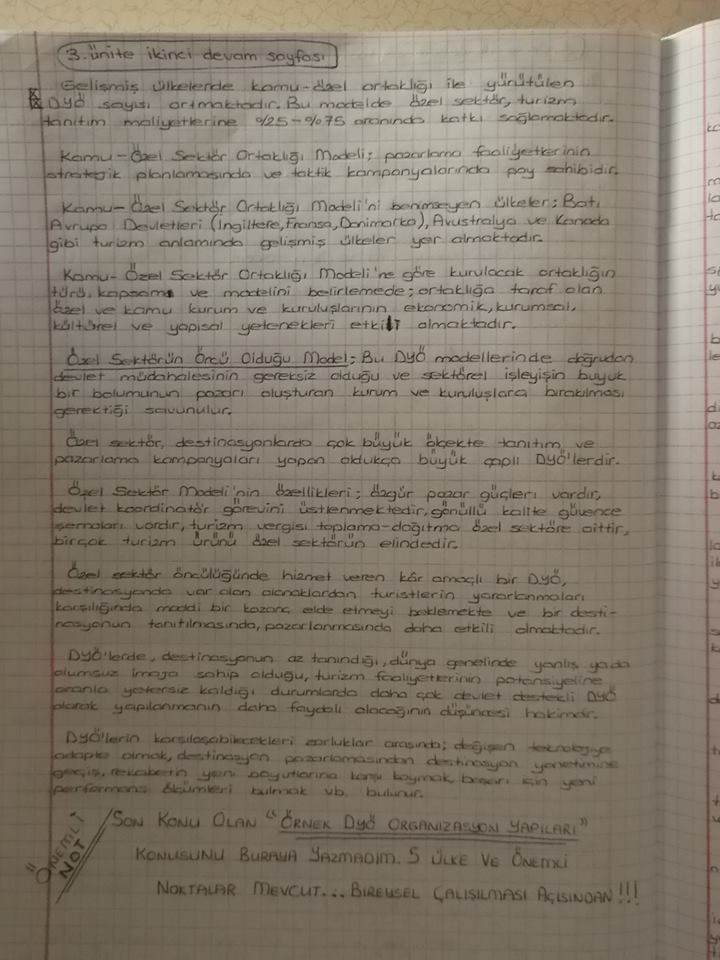 3. ünite ikinci devam sayfası
Gelişmiş ülkelerde kamu-özel ortaklığı ile yürütülen
DYÖ sayısı artmaktadır. Bu modelde özel sektör, turizm
tanıtım maliyetlerine %25-%75 oranında katkı sağlamaktadır.
Kamu-Özel Sektör Ortaklığı Modeli; pazarlama faaliyetlerinin
stratejik planlamasında ve taktik kampanyalarında pay sahibidir.
Kamu-Özel Sektör Ortaklığı Modeli'ni benimseyen ülkeler; Batı
Avrupa Devletleri (İngiltere, Fransa, Danimarka), Avustralya ve Kanada
gibi turizm anlamında gelişmiş ülkeler yer almaktadır.
Kamu-Özel Sektör Ortaklığı Modeli'ne göre kurulacak ortaklığın
türü, kapsamı ve modelini belirlemede; ortaklığa taraf olan
özel ve kamu kurum ve kuruluşlarının ekonomik, kurumsal,
kültürel ve yapısal yetenekleri etkili olmaktadır.
Özel Sektörün Öncü Olduğu Model; Bu DYÖ modellerinde doğrudan
devlet müdahalesinin gereksiz olduğu ve sektörel işleyişin büyük
bir bölümünün pazarı oluşturan kurum ve kuruluşlara bırakılması
gerektiği savunulur.
Özel sektör, destinasyonlarda çok büyük ölçekte tanıtım ve
pazarlama kampanyaları yapan oldukça büyük çaplı DYÖ'lerdir.
Özel Sektör Modeli'nin özellikleri; özgür pazar güçleri vardır,
devlet koordinatör görevini üstlenmektedir, gönüllü kalite güvence
şemaları vardır, turizm vergisi toplama-dağıtma özel sektöre aittir,
birçok turizm ürünü özel sektörün elindedir.
Özel sektör öncülüğünde hizmet veren kâr amaçlı bir DYÖ,
destinasyonda var olan olanaklardan turistlerin yararlanmaları
karşılığında maddi bir kazanç elde etmeyi beklemekte ve bir desti-
nasyonun tanıtılmasında, pazarlanmasında daha etkili olmaktadır.
DYÖ'lerde, destinasyonun az tanındığı, dünya genelinde yanlış yada
olumsuz imaja sahip olduğu, turizm faaliyetlerinin potansiyeline
oranla yetersiz kaldığı durumlarda daha çok devlet destekli DYÖ
olarak yapılanmanın daha faydalı olacağının düşüncesi hakimdir.
DYÖ'lerin karşılaşabilecekleri zorluklar arasında; değişen teknolojiye
adapte olmak, destinasyon pazarlamasından destinasyon yönetimine
geçiş, rekabetin yeni boyutlarına karşı koymak, başarı için yeni
performans ölçümleri bulmak vb. bulunur.
"ÖNEMLİ
NOT
SON KONU OLAN "ÖRNEK DYÖ ORGANİZASYON YAPILARI"
KONUSUNU BURAYA YAZMADIM. 5 ÜLKE VE ÖNEMLİ
NOKTALAR MEVCUT... BİREYSEL ÇALIŞILMASI AÇISINDAN!!!